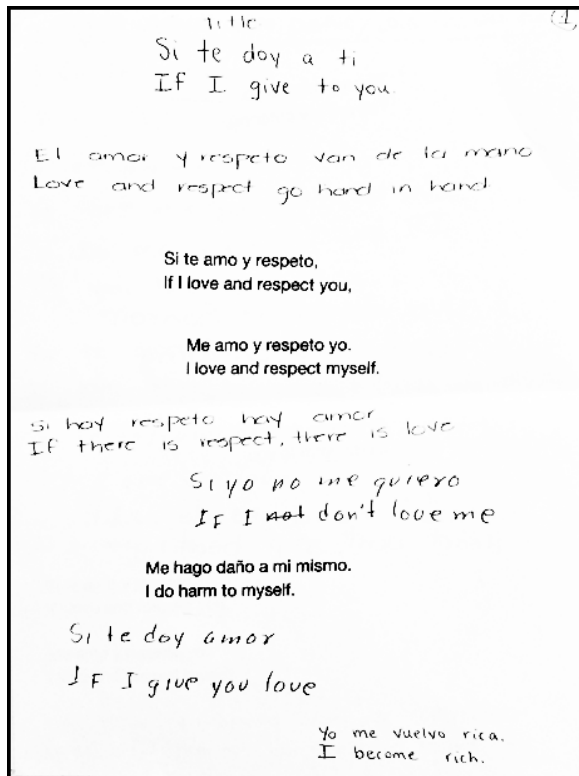 Title
Si te doy a ti
If I give to you
El amor y respeto van de la mano
Love and respect go hand in hand
Si te amo y respeto,
If I love and respect you,
Me amo y respeto yo.
I love and respect myself.
Si hay respeto hay amor
If there is respect, there is love
Si yo no me quiero
If I not don't love me
Me hago daño a mi mismo.
I do harm to myself.
Si te doy amor
If I give you love
Yo me vuelvo rica.
I become rich.